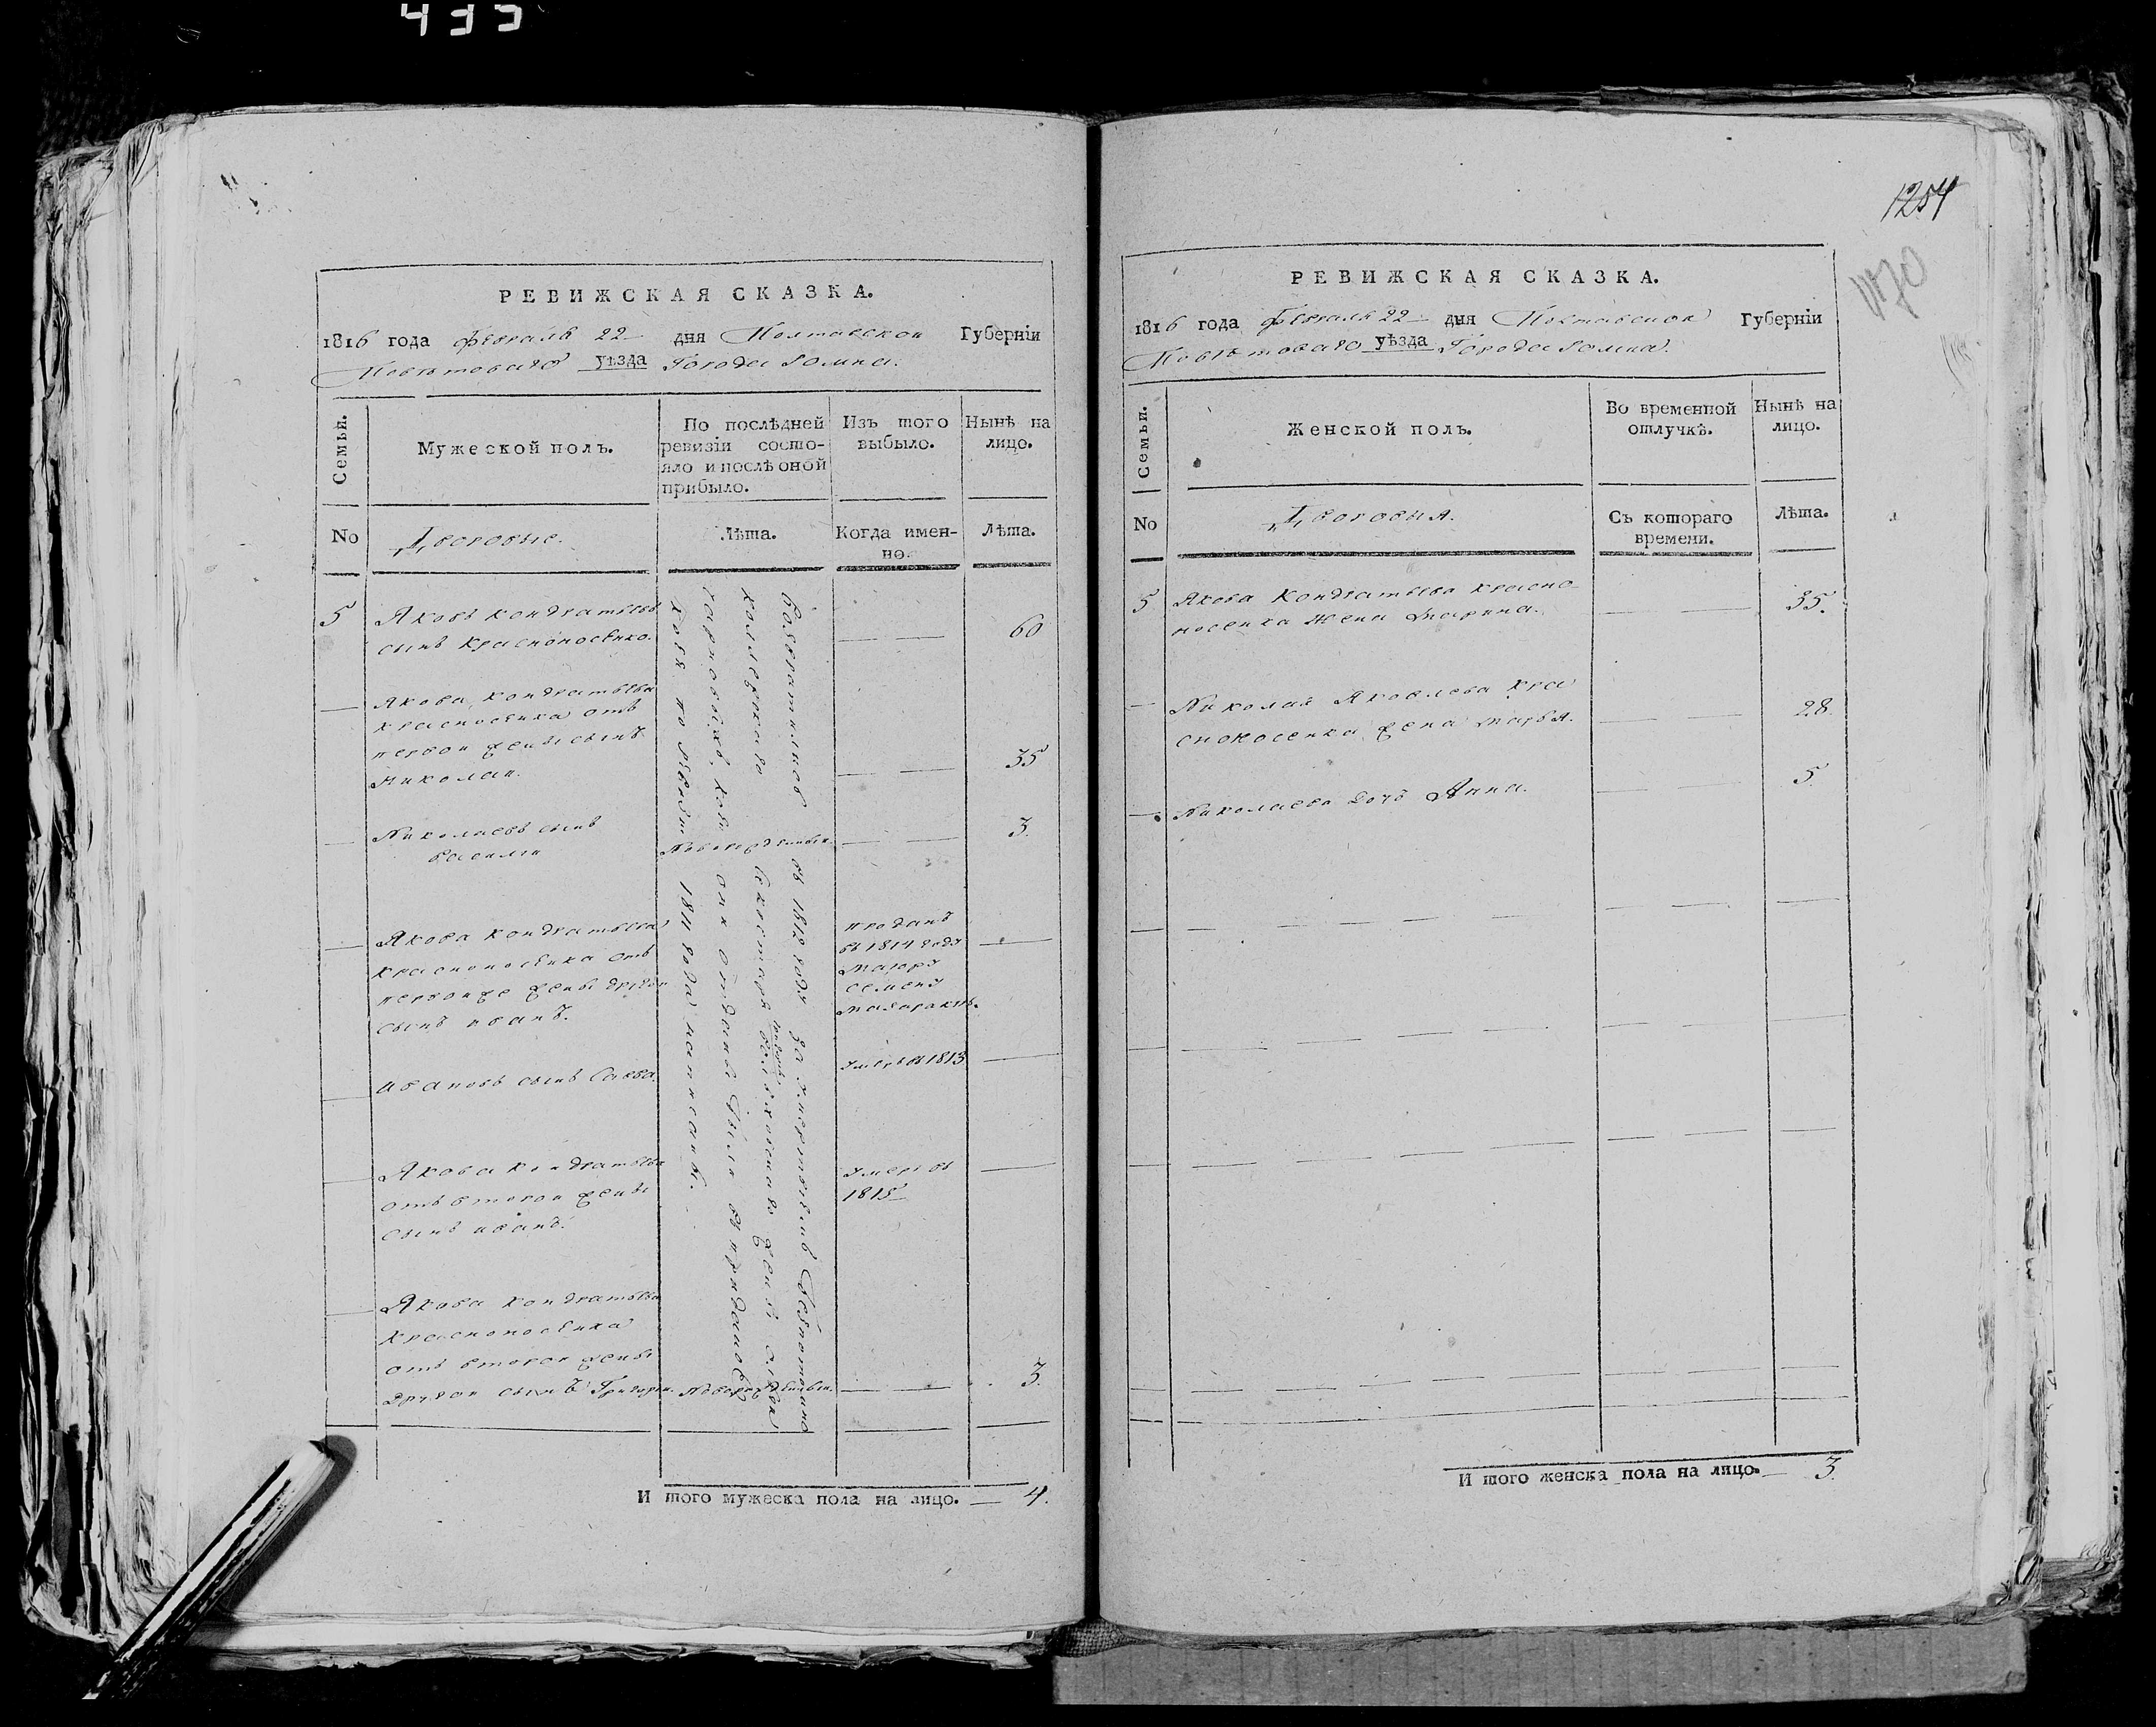 435
РЕВИЖСКАЯ СКАЗКА.
1816 года февраля 22 дня Полтавской Губерніи
Повѣтоваго уѣзда Города Ромна.
Семьи.
Мужеской полъ.
По послѣдней
ревизіи состо-
яло и послѣ оной
прибыло.
Изъ того
выбыло.
Нынѣ на
лицо.
No
Дворовые.
Лѣта.
Когда имен-
но.
Лѣта.
5 Яковъ Кондратьевъ
сынъ Красноносенко. 60
Якова Кондратьева
Красноносенка отъ
первой жены сынъ
Николай. 35
Николаевъ сынъ
Василій Новорожденный 3.
Якова Кондратьева
Красноносенка отъ
первой же жены другой
сынъ Иванъ.
проданъ
въ 1814 году
Маіору
Семену
Ивановъ сынъ Савва.
умеръ въ 1813
Якова Кондратьева
отъ второй жены
сынъ Иванъ.
умеръ въ
1815
Якова Кондратьева
Красноносенка
отъ второй жены
другой сынъ Григорій. Новорожденный 3.
Возвратились въ 1812 году за умертвіемъ безпотомно
коллежского секретаря жены
кои они отданы были въ приданое
по ревизіи 1811 года написаны.
И того мужеска пола на лицо. — 4.
1254
1170
РЕВИЖСКАЯ СКАЗКА.
1816 года февраля 22 дня Полтавской Губерніи
Повѣтоваго уѣзда Города Ромна.
Семьи.
Женской полъ.
Во временной
отлучкѣ.
Нынѣ на
лицо.
No
Дворовыя.
Съ котораго
времени.
Лѣта.
5 Якова Кондратьева Красно
носенка жена Марина. 35.
Николая Яковлева Кра
сноносенка жена Марья. 28.
Николаева дочь Анна. 5.
И того женска пола на лицо. — 3.